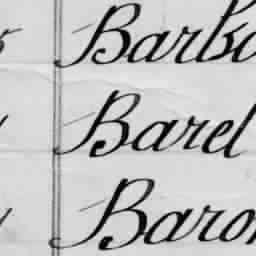 Barba
Barel
Baron